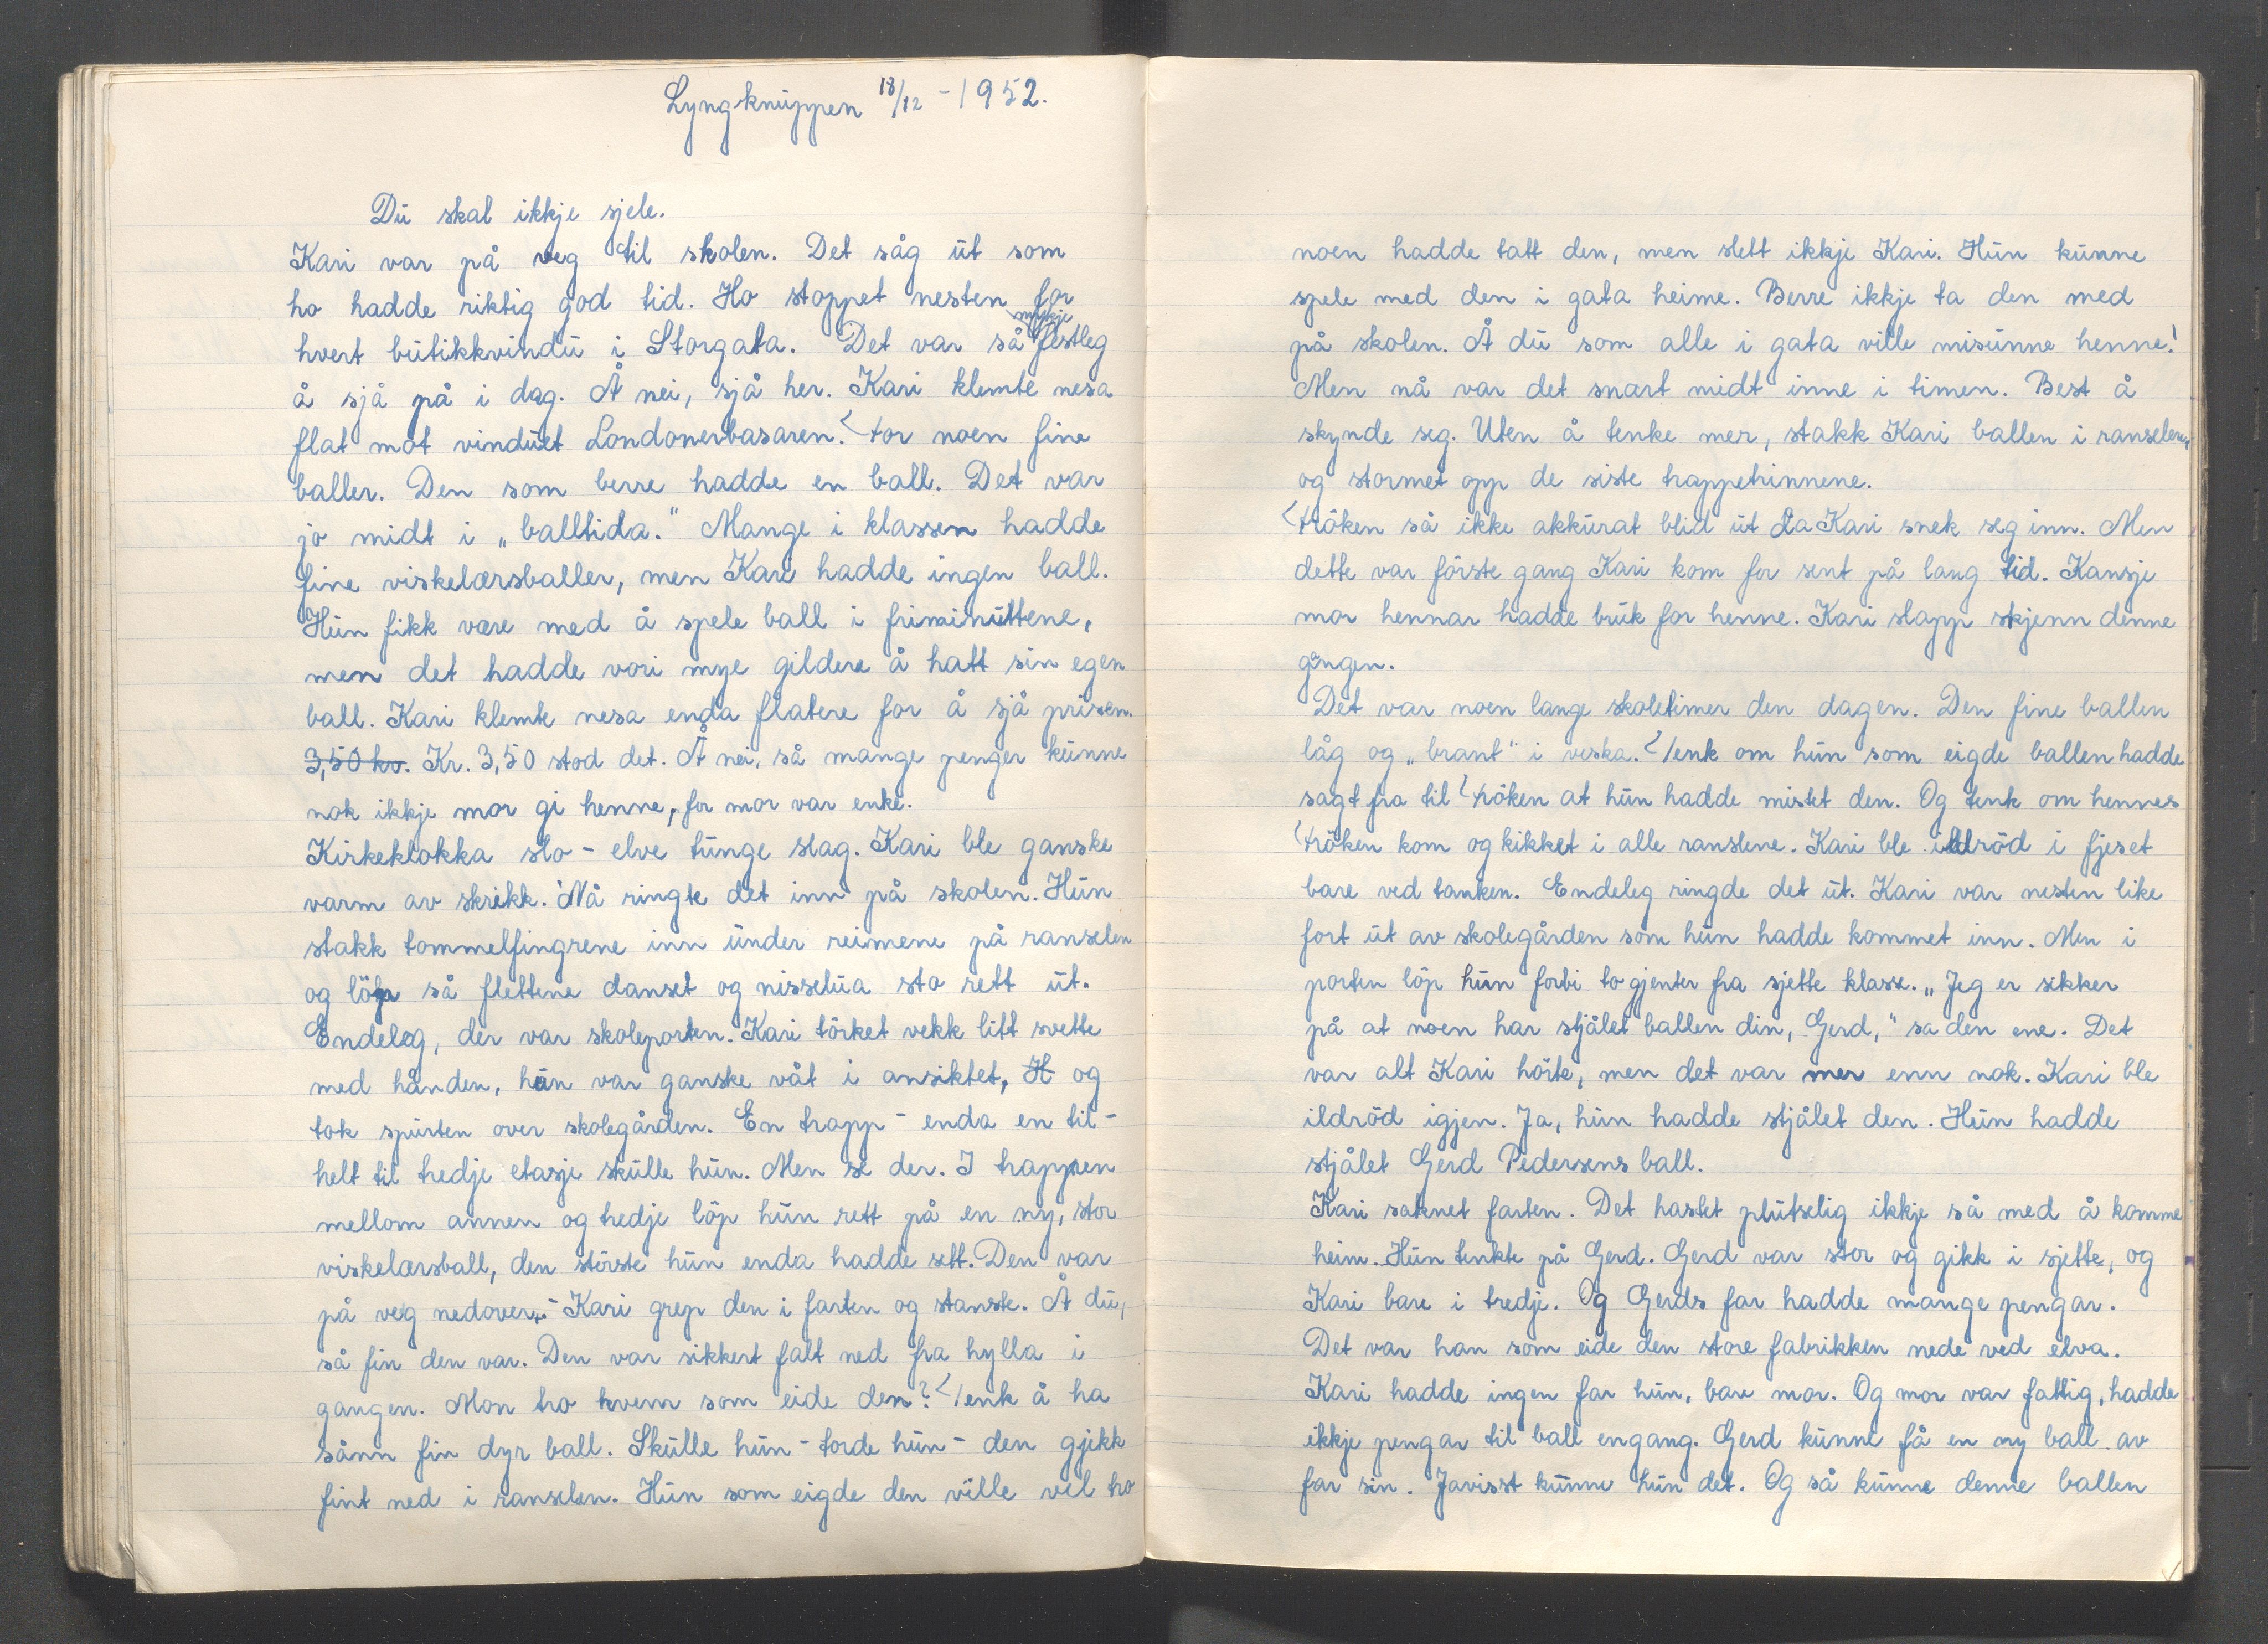 Lyngknuppen 18/12 - 1952.
Du skal ikkje sjele.
Kari var på veg til skolen. Det såg ut som
ho hadde riktig god tid. Ho stoppet nesten for
hvert butikkvindu i Storgata. Det var så mykje festleg
å sjå på i dag. Å nei, sjå her. Kari klemte nesa
flat mot vinduet Londonerbasaren. For noen fine
baller. Den som berre hadde en ball. Det var
jo midt i „balltida.“ Mange i klassen hadde
fine viskelærsballer, men Kari hadde ingen ball.
Hun fikk være med å spele ball i friminuttene,
men det hadde vori mye gildere å hatt sin egen
ball. Kari klemte nesa enda flatere for å sjå prisen.
3,50 kr. Kr. 3,50 stod det. Å nei, så mange penger kunne
nok ikkje mor gi henne, for mor var enke.
Kirkeklokka slo - elve tunge slag. Kari ble ganske
varm av skrekk. Nå ringte det inn på skolen. Hun
stakk tommelfingrene inn under reimene på ranselen
og löp så flettene danset og nisselua sto rett ut.
Endeleg, der var skoleporten. Kari törket vekk litt svette
med hånden, hun var ganske våt i ansiktet, H og
tok spurten over skolegården. En trapp - enda en til -
helt til tredje etasje skulle hun. Men se der. I trappen
mellom annen og tredje löp hun rett på en ny, stor
viskelærsball, den störste hun enda hadde sett. Den var
på veg nedover. - Kari grep den i farten og stanste. Å du,
så fin den var. Den var sikkert falt ned fra hylla i
gangen. Mon tro kvem som eide den? Tenk å ha
sånn fin dyr ball. Skulle hun - torde hun - den gjekk
fint ned i ranselen. Hun som eigde den ville vel tro
noen hadde tatt den, men slett ikkje Kari. Hun kunne
spele med den i gata heime. Berre ikkje ta den med
på skolen. Å du som alle i gata ville misunne henne!
Men nå var det snart midt inne i timen. Best å
skynde seg. Uten å tenke mer, stakk Kari ballen i ranselen,
og stormet opp de siste trappetrinnene.
Fröken så ikke akkurat blid ut da Kari snek seg inn. Men
dette var förste gang Kari kom for sent på lang tid. Kansje
mor hennar hadde bruk for henne. Kari slapp skjenn denne
gangen.
Det var noen lange skoletimer den dagen. Den fine ballen
låg og „brant“ i veska. Tenk om hun som eigde ballen hadde
sagt fra til Fröken at hun hadde mistet den. Og tenk om hennes
Fröken kom og kikket i alle ranslene. Kari ble ildröd i fjeset
bare ved tanken. Endeleg ringde det ut. Kari var nesten like
fort ut av skolegården som hun hadde kommet inn. Men i
porten löp hun forbi to gjenter fra sjette klasse. „Jeg er sikker
på at noen har stjålet ballen din, Gerd,“ sa den ene. Det
var alt Kari hörte, men det var mer enn nok. Kari ble
ildröd igjen. Ja, hun hadde stjålet den. Hun hadde
stjålet Gerd Pedersens ball.
Kari saknet farten. Det hastet plutselig ikkje så med å komme
heim. Hun tenkte på Gerd. Gerd var stor og gikk i sjette, og
Kari bare i tredje. Og Gerds far hadde mange pengar.
Det var han som eide den store fabrikken nede ved elva.
Kari hadde ingen far hun, bare mor. Og mor var fattig, hadde
ikkje pengar til ball engang. Gerd kunne få en ny ball av
far sin. Javisst kunne hun det. Og så kunne denne ballen